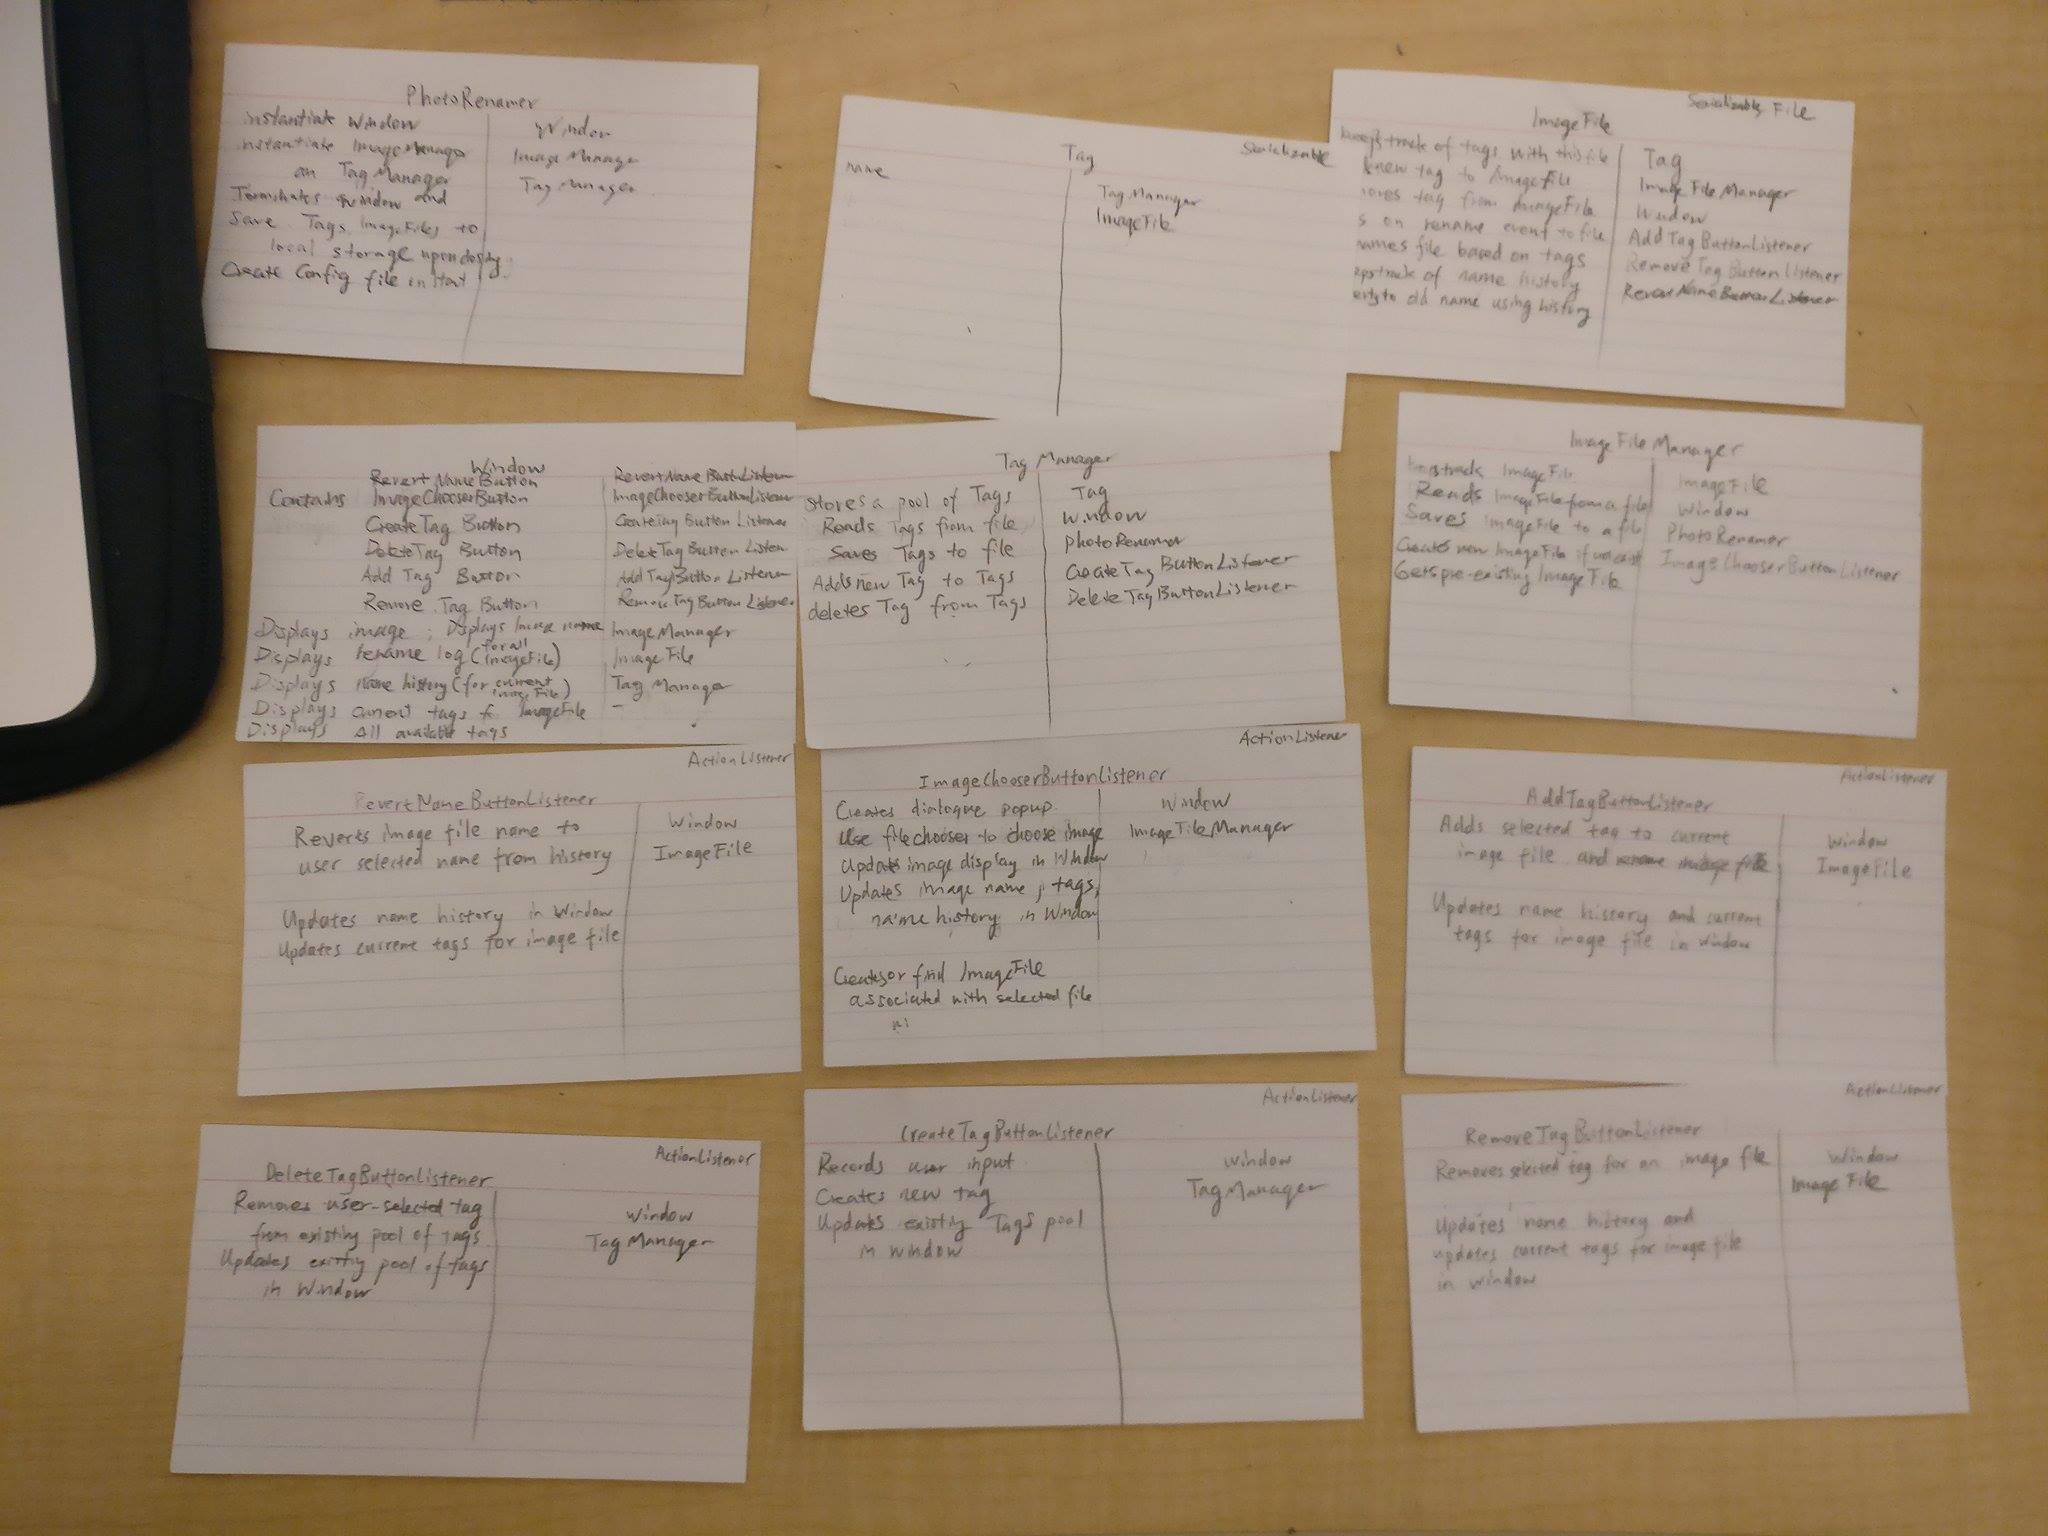 PhotoRenamer
instantiate window
instantiate ImageManager
an TagManager
Terminates window and
Save Tags, ImageFiles to
local storage upon closing
Create Config file on start
Window
Image Manager
Tag Manager
Serializable
Tag
name
Tag Manager
ImageFile
Serializable, File
ImageFile
keeps track of tags with this file
new tag to ImageFile
tag from ImageFile
s on rename event to file
names file based on tags
track of name history
to old name using history
Tag
Image File Manager
Window
AddTagButtonListener
Remove Tag Button Listener
Revert Name Button Listener
Window
Contains Revert Name Button
ImageChooserButton
CreateTag Button
DeleteTag Button
Add Tag Button
Remove Tag Button
Displays image ; Displays image name
Displays rename log (for all ImageFile)
Displays name history (for current Image File)
Displays current tags for ImageFile
Displays All available tags
Revert Name Button Listener
ImageChooserButtonListener
CreateTag Button Listener
DeleteTag Button Listen
Add Tag Button Listener
Remove Tag Button Listener
ImageManager
Image File
Tag Manager
–
Tag Manager
Stores a pool of Tags
Reads Tags from file
Saves Tags to file
Adds new Tag to Tags
deletes Tag from Tags
Tag
Window
PhotoRenamer
CreateTag ButtonListener
DeleteTagButtonListener
ImageFileManager
track ImageFile
Reads ImageFile from a file
Saves ImageFile to a file
Creates new ImageFile if
Gets pre-existing ImageFile
ImageFile
Window
PhotoRenamer
ImageChooserButtonListener
ActionListener
RevertNameButtonListener
Reverts image file name to
user selected name from history
Updates name history in Window
Updates current tags for image file
Window
ImageFile
ActionListener
ImageChooserButtonListener
Creates dialogue popup
Use file chooser to choose image
Updates image display in Window
Updates image name, tags,
name history in Window
Creates or find ImageFile
associated with selected file
Window
ImageFileManager
ActionListener
AddTagButtonListener
Adds selected tag to current
image file and rename image file
Updates name history and current
tags for image file in window
Window
ImageFile
ActionListener
DeleteTagButtonListener
Removes user-selected tag
from existing pool of tags
Updates existing pool of tags
in Window
Window
TagManager
ActionListener
CreateTagButtonListener
Records user input
Creates new tag
Updates existing Tags pool
in window
Window
TagManager
ActionListener
RemoveTagButtonListener
Removes selected tag for an image file
Updates name history and
updates current tags for image file
in window
Window
Image File